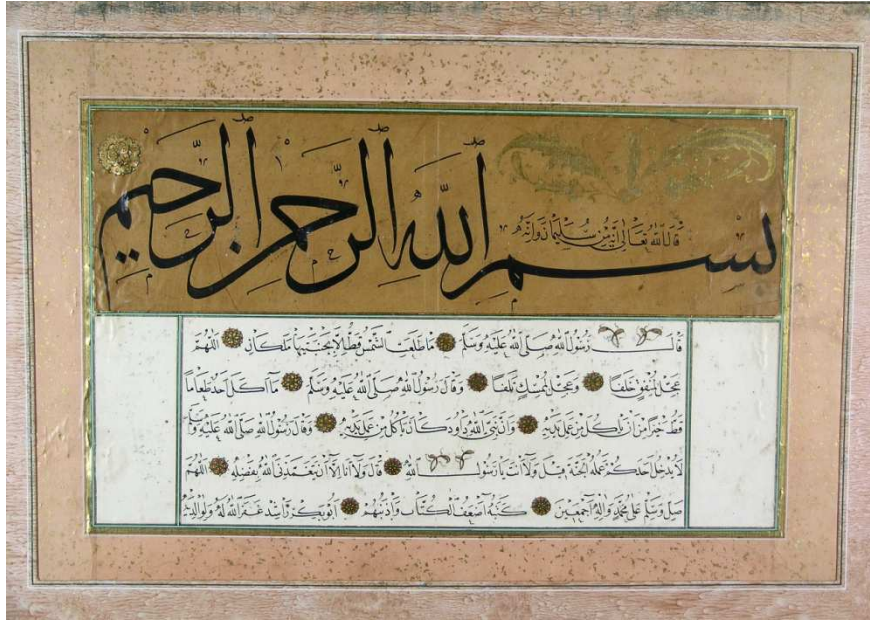 بسم الله الرحمن الرحيم
قال الله تعالى إنه من سليمان وإنه
قال رسول الله صلى الله عليه وسلم ما طلعت الشمس قط إلا بجنبيها ملكان اللهم
عجل لمنفق خلفا وعجل لممسك تلفا وقال رسول الله صلى الله عليه وسلم ما أكل أحد طعاما
قط خيرا من أن يأكل من عمل يديه وإن نبي الله داود كان يأكل من عمل يديه وقال رسول الله صلى الله عليه وسلم
لا يدخل أحدكم عمله الجنة قيل ولا أنت يا رسول الله قال ولا أنا إلا أن يتغمدني الله بفضله اللهم
صل وسلم على محمد وآله أجمعين كتبه أضعف الكتاب وأذنبهم أبو بكر راشد غفر الله له ولوالديه